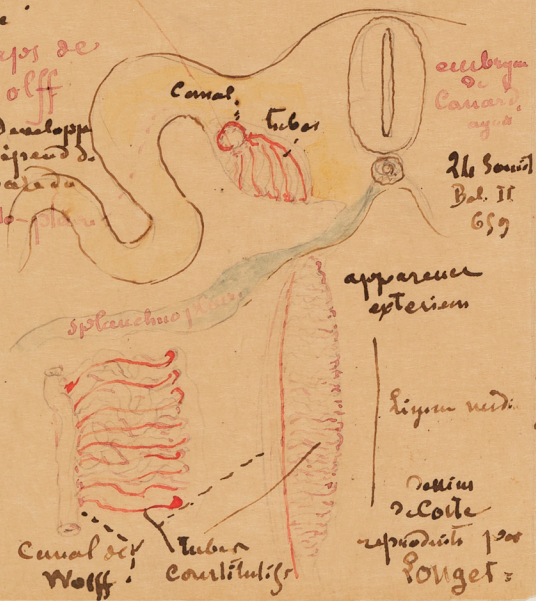 de
olff
Developp
Canal
tubes
embryon
de
Canard
24 Somit
Bal. II
659
apparence
exterieure
splanchnopleure
Ligne médi
dessins
de Coste
reproduits par
Longet
Canal de
Wolff
tubes
constitutifs